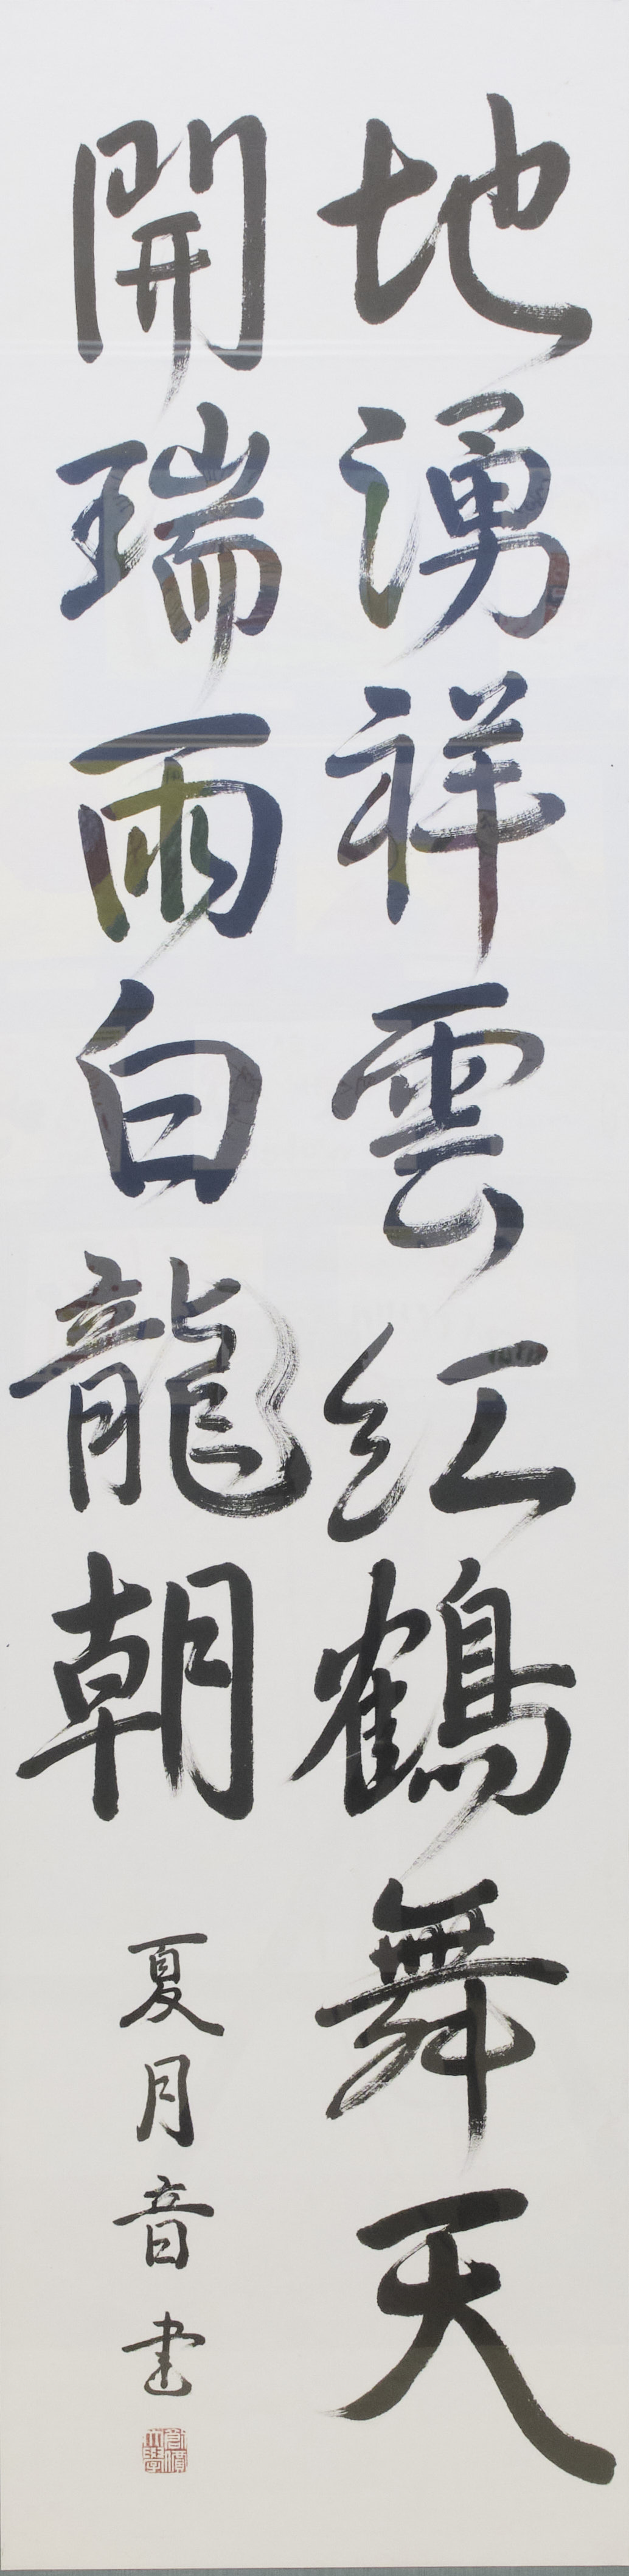 地湧祥雲紅鶴舞天
開瑞雨白龍朝
夏月音書